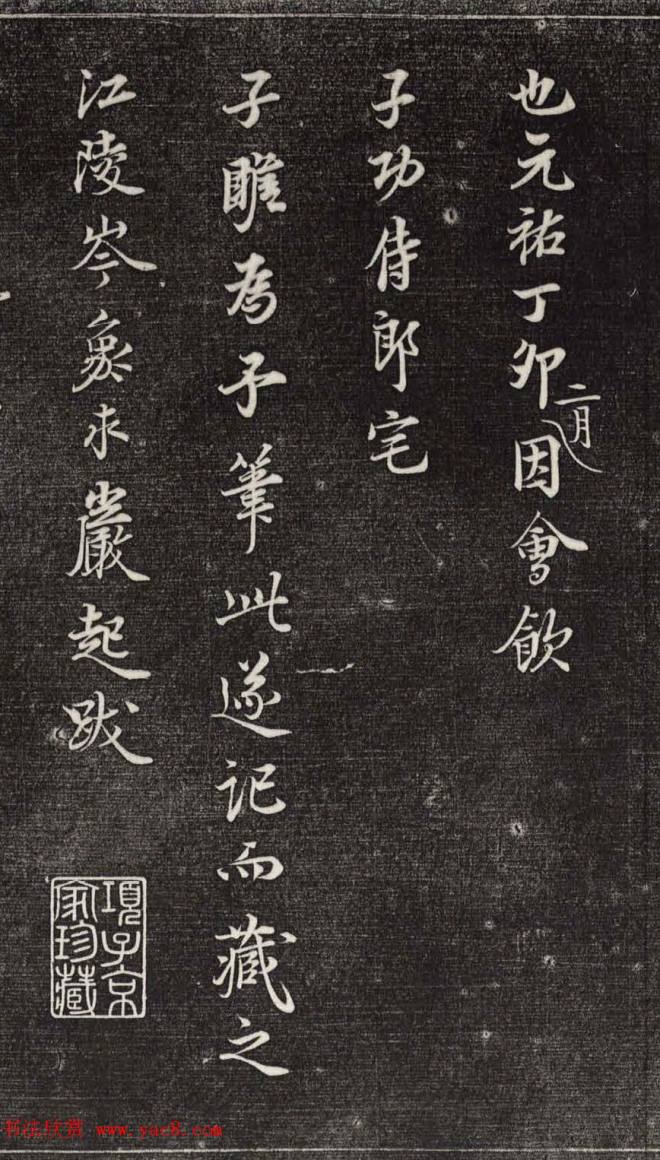 也元祐丁卯二月因會飲
子功侍郎宅
子雎為予筆此遂記而藏之
江陵岑象求巖起跋
項子京家珍藏
书法欣赏 www.yac8.com